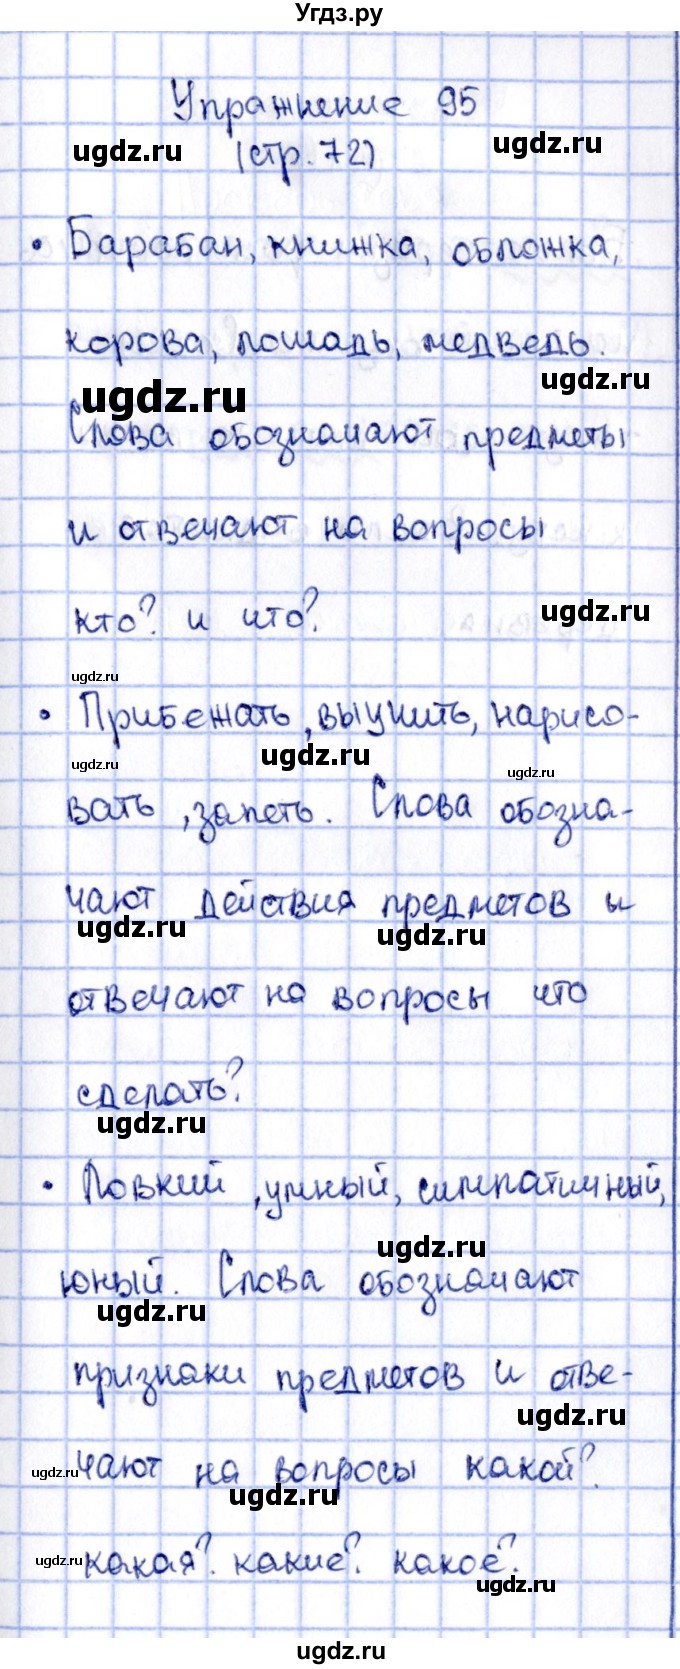 Угдз.ру
Упражнение 95
ugdz.ru
(стр. 72)
ugdz.ru
• Барабан, книжка, обложка,
корова, лошадь, медведь.
ugdz.ru
ugdz.ru
Слова обозначают предметы
и отвечают на вопросы
кто? и что?
ugdz.ru
ugdz.ru
• Прибежать, выучить, нарисо-
ugdz.ru
ugdz.ru
ugdz.ru
вать, запеть. Слова обозна-
чают действия предметов и
ugdz.ru
ugdz.ru
отвечают на вопросы что
сделать?
ugdz.ru
• Ловкий, умный, симпатичный,
ugdz.ru
юный. Слова обозначают
ugdz.ru
признаки предметов и отве-
ugdz.ru
чают на вопросы какой?
ugdz.ru
ugdz.ru
какая? какие? какое?
ugdz.ru
ugdz.ru
ugdz.ru